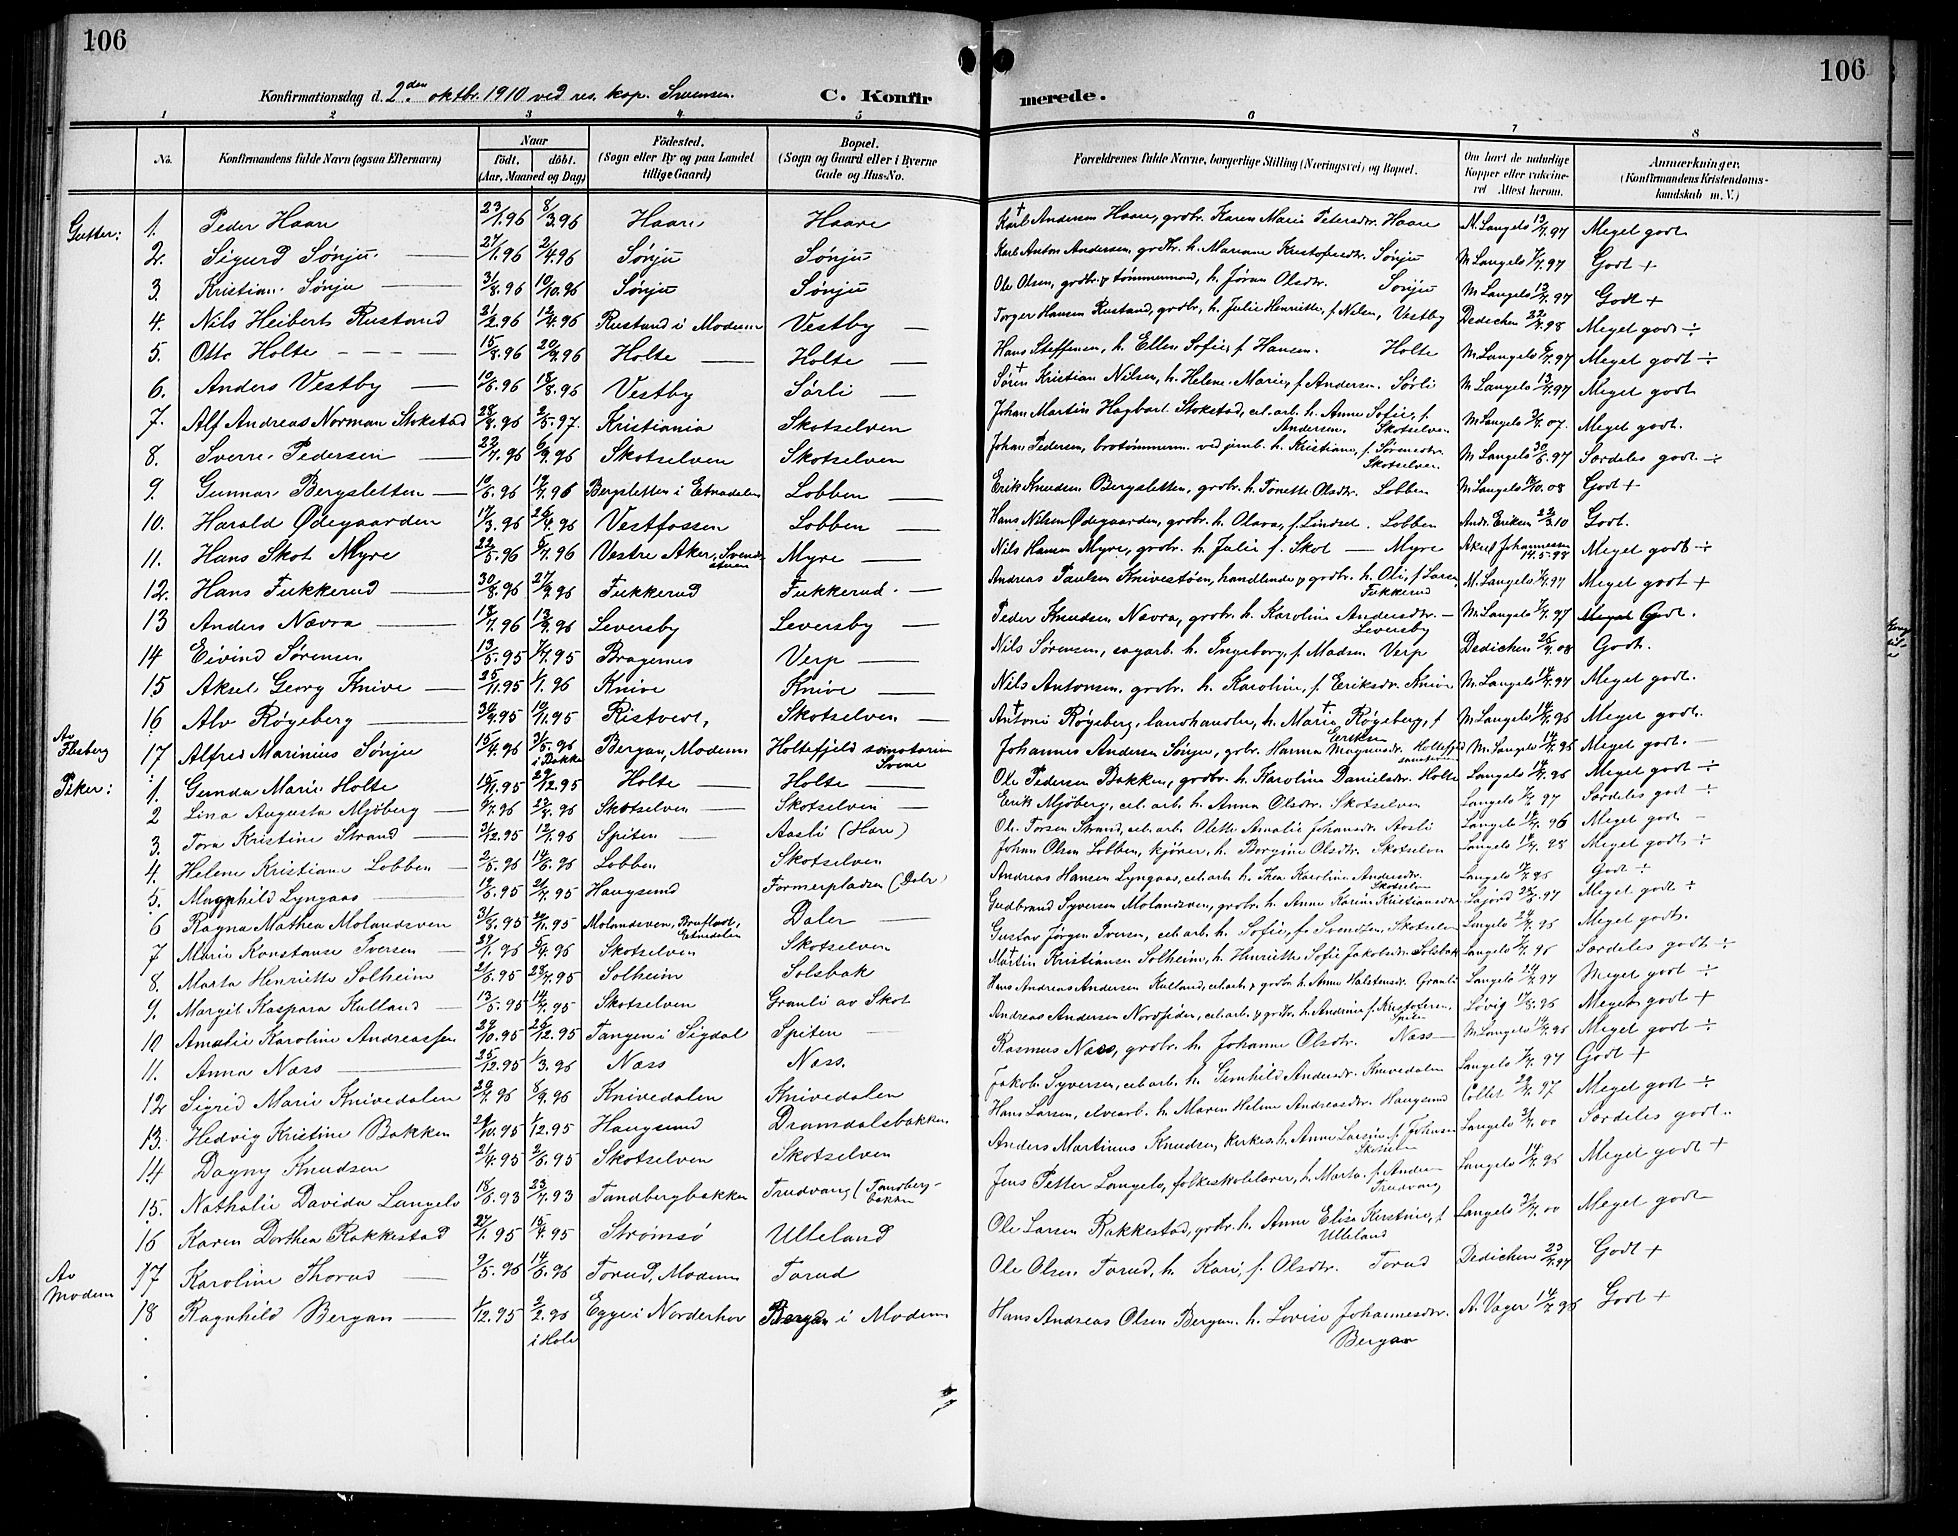 106
106
Konfirmationsdag d. 2den oktbr. 1910 ved res. kap. Svensen.
C. Konfirmerede.
1 2 3 4 5 6 7 8
No.
Konfirmandens fulde Navn (ogsaa Efternavn)
Naar
født. døbt.
(Aar, Maaned og Dag)
Fødested.
(Sogn eller By og paa Landet tillige Gaard)
Bopæl.
(Sogn og Gaard eller i Byerne Gade og Hus-No.
Forældrenes fulde Navne, borgerlige Stilling (Næringsvei) og Bopæl.
Om havt de naturlige Kopper eller vakcineret Attest herom.
Anmærkninger.
(Konfirmandens Kristendomskundskab m. V.)
Gutter: 1. Peder Haare 23/1.96 8/3.96 Haare Haare † Karl Andersen Haare, grdbr. Karen Marie Petersdtr. Haare M. Langelo 13/7.97 Meget godt
2. Sigurd Sønju 27/1.96 2/4.96 Sønju Sønju Karl Anton Andersen, grdbr. h. Mariane Kristofersdtr. Sønju M Langelo 1/7.97 Godt +
3. Kristian Sønju 31/8.96 10/10.96 Sønju Sønju Ole Olsen, grdbr. & tømmermand, h. Jøran Olsdtr. Sønju M Langelo 13/7.97 Godt +
4. Nils Heibert Rustand 21/2.96 12/4.96 Rustand i Modum Vestby Torger Hansen Rustand, grdbr, h. Julie Henriette, f Nilsen, Vestby Dedichen 22/7.98 Meget godt ÷
5. Otto Holte 15/8.96 20/9.96 Holte Holte Hans Steffensen, h. Ellen Sofie, f. Hansen. Holte M. Langelo 6/7.97 Meget godt ÷
6. Anders Vestby 10/6.96 18/8.96 Vestby Sørli † Søren Kristian Nilsen, h. Helene Marie, f Andersen. Sørli M. Langelo 13/7.97 Meget godt
7. Alf Andreas Norman Stokstad 28/8.96 2/5.97. Kristiania Skotselven Johan Martin Hagbart Stokstad, cel.arb. h. Anne Sofie, f. Andersen. Skotselven M Langelo 07. Meget godt.
8. Sverre Pedersen 22/7.96 6/9.96 Skotselven Skotselven Johan Pedersen, brotømmerm. ved jernb. h. Kristiane, f. Sørensdtr. Skotselven M. Langelo 30/6.97 Særdeles godt ÷
9. Gunnar Bergsletten 10/6.96 19/7.96 Bergsletten i Etnedalen Lobben Erik Knudsen Bergsletten, grdbr. h. Tonette Olsdtr. Lobben M Langelo 10.08 Godt +
10. Harald Ødegaarden 17/3.96 26/4.96 Vestfossen Lobben Hans Nilsen Ødegaarden, grdbr. h. Olava, f. Lindsel. Lobben Andr. Eriksen 22/3.10 Godt.
11. Hans Skot Myre 22/5.96 5/7.96 Vestre Aker, Svendstuen Myre Nils Hansen Myre, grdbr. h. Julie f. Skot Myre Aksel Johannessen 14.5.98 Meget godt ÷
12. Hans Fukkerud 30/8.96 27/9.96 Fukkerud Fukkerud. Andreas Paulsen Knivestøen, handlende & grdbr. h. Oli, f Larsen Fukkerud M. Langelo 1/7.97 Meget godt +
13 Anders Nævra 18/7.96 13/9.96 Leversby Leversby Peder Knudsen Nævra, grdbr. h. Karoline Andersdtr. Leversby M. Langelo 1/7.97 Meget Godt.
14 Eivind Sørensen 13/5.95 7/7.95 Bragernes Verp Nils Sørensen, sagarb. h. Ingeborg, f. Madsen Verp Dedichen 26/7.08 Godt.
15 Aksel Georg Knive 25/11.95 1/1.96 Knive Knive Nils Antonsen, grdbr. h. Karoline, f Eriksdtr. Knive M. Langelo 14/7.97 Meget godt.
16 Alv Røgeberg 9.95 10/11.95 Ristvedt, Skotselven † Antoni Røgeberg, landhandler, h. † Maria Røgeberg, f Eriksen M. Langelo 14/7.96 Meget godt.
Av Flesberg 17 Alfred Marinius Sønju 15/4.96 31/5.96 i Bakke Bergan, Modum Holtefjeld sanatorium Svene Johannes Andersen Sønju, grbr. Hanna Magnusdtr. Holtefjeld sanatorium M. Langelo 14/7.96 Meget godt.
Piker: 1. Gunda Marie Holte 15/11.95 29/12.95 Holte Holte Ole Pedersen Bakken, grdbr. h. Karoline Danielsdtr. Holte Langelo 14/7.96 Meget godt ÷
2 Lina Augusta Mjøberg 6/7.96 23/8.96 Skotselven Skotselven Erik Mjøberg, cel.arb. h. Anna Olsdtr. Skotselven Langelo 7.97 Særdeles godt ÷
3. Tora Kristine Strand 31/12.95 12/1.96 Spiten Aasli (Hare) Ole Torsen Strand, cel.arb. Olette Amalie Johansdtr. Aasli Langelo 14/7.96 Meget godt
4. Helene Kristiane Lobben 2/5.96 14/6.96 Lobben Skotselven Johan Olsen Lobben, kjører, h. Bergine Olsdtr. Skotselven Langelo 14/7.98 Meget godt ÷
5. Magnhild Lyngaas 19/6.95 21/7.95 Haugsund Formerpladsen (Daler) Andreas Hansen Lyngaas, cel.arb. h. Thea Karoline Andersdtr. Skotselven Langelo 7.96 Godt ÷
6 Ragna Mathea Molandsven 31/8.95 11.95 Molandsven, Bruflat, Etnedalen Daler Gudbrand Syversen Molandsven, grdbr. h. Anne Karine Kristiansdtr Sajord 28/8.97 Meget godt ÷
7 Marie Konstanse Iversen 29/1.96 5/4.96 Skotselven Skotselven Gustav Jørgen Iversen, cel.arb. h. Sofie, f. Svendsen, Skotselven Langelo 24/7.96 Meget godt.
8. Marta Henriette Solheim 21/6.95 28/7.95 Solheim Solsbak † Martin Kristiansen Solheim, h. Henriette Sofie Jakobsdtr. Solsbak Langelo 7.96 Særdeles godt ÷
9. Margit Kaspara Kulland 13/5.95 14/7.95 Skotselven Granli av Skot Hans Andreas Andersen Kulland, cel.arb. & grdbr h. Anne Halstensdtr. Granli Langelo 14/7.97 Meget godt ÷
10 Amalie Karoline Andreassen 29/10.95 26/12.95 Tangen i Sigdal Spiten Andreas Andersen Nordseden, cel.arb. & grdbr. h. Andrine f. Kristofersen. Spiten Løvig 17/8.96 Meget godt +
11. Anna Næss 25/12.95 1/3.96 Næss Næss. Rasmus Næss, grdbr. h. Johanne Olsdtr. Næss M. Langelo 14/7.96 Meget godt ÷
12 Sigrid Marie Knivedalen 20/7.96 8/9.96 Knivedalen Knivedalen Jakob Syversen, cel.arb. h. Gunhild Andersdtr. Knivedalen Langelo 7/7.97 Godt +
13. Hedvig Kristine Bakken 20/10.95 1/12.95 Haugsund Dramdalsbakken Hans Larsen, elvearb. h. Maren Helene Andreasdtr. Haugsund Collet 29/7.97 Meget godt ÷
14 Dagny Knudsen 21/4.95 2/6.95 Skotselven Skotselven Anders Martinus Knudsen, kirkes. h. Anne Larsine f. Johnsen Skotselven Langelo 3/7.00 Særdeles godt.
15. Nathalie Davida Langelo 18/6.93 23/7.93 Tandbergbakken Trudvang (Tandbergbakken Jens Petter Langelo, folkeskolelærer, h. Marta f. Andersen Trudvang Langelo 14/7.96 Meget godt +
16 Karen Dorthea Rakkestad 27/1.95 15/4.95 Strømsø Ulleland Ole Larsen Rakkestad, grdbr. h. Anne Elise Kirstine, f Ulleland Langelo 3/7.00 Meget godt
Av Modum 17 Karoline Thorud 9/5.96 14/6.96 Torud, Modum Torud Ole Olsen Torud, h. Kari, f. Olsdtr. Torud Dedichen 23/7.97 Godt +
18 Ragnhild Bergan 1/12.95 2/2.96 i Hole Egge i Norderhov Bergan i Modum Hans Andreas Olsen Bergan. h. Lovise Johannesdtr. Bergan A. Vager 14/7.96 Godt +